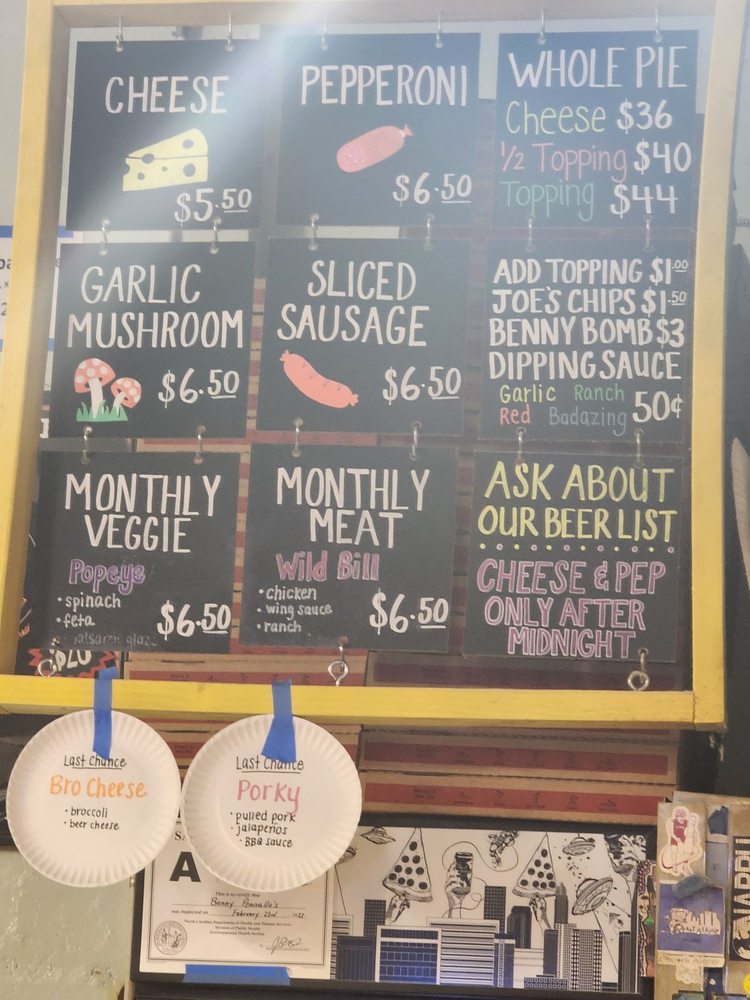 CHEESE
$5.50
PEPPERONI
$6.50
WHOLE PIE
Cheese $36
1/2 Topping $40
Topping $44
GARLIC
MUSHROOM
$6.50
SLICED
SAUSAGE
$6.50
ADD TOPPING $1.00
JOE'S CHIPS $1.50
BENNY BOMB $3
DIPPING SAUCE
Garlic Ranch
Red Badazing 50¢
MONTHLY
VEGGIE
Popeye
• spinach
• feta
$6.50
MONTHLY
MEAT
Wild Bill
• chicken
• wing sauce
• ranch
$6.50
ASK ABOUT
OUR BEER LIST
CHEESE & PEP
ONLY AFTER
MIDNIGHT
$20
Last Chance
Bro Cheese
• broccoli
• beer cheese
Last Chance
Porky
• pulled pork
• jalapenos
• BBQ sauce
A
This is to certify that
was inspected on February 22nd
North Carolina Department of Health and Human Services
Division of Public Health
Environmental Health Section